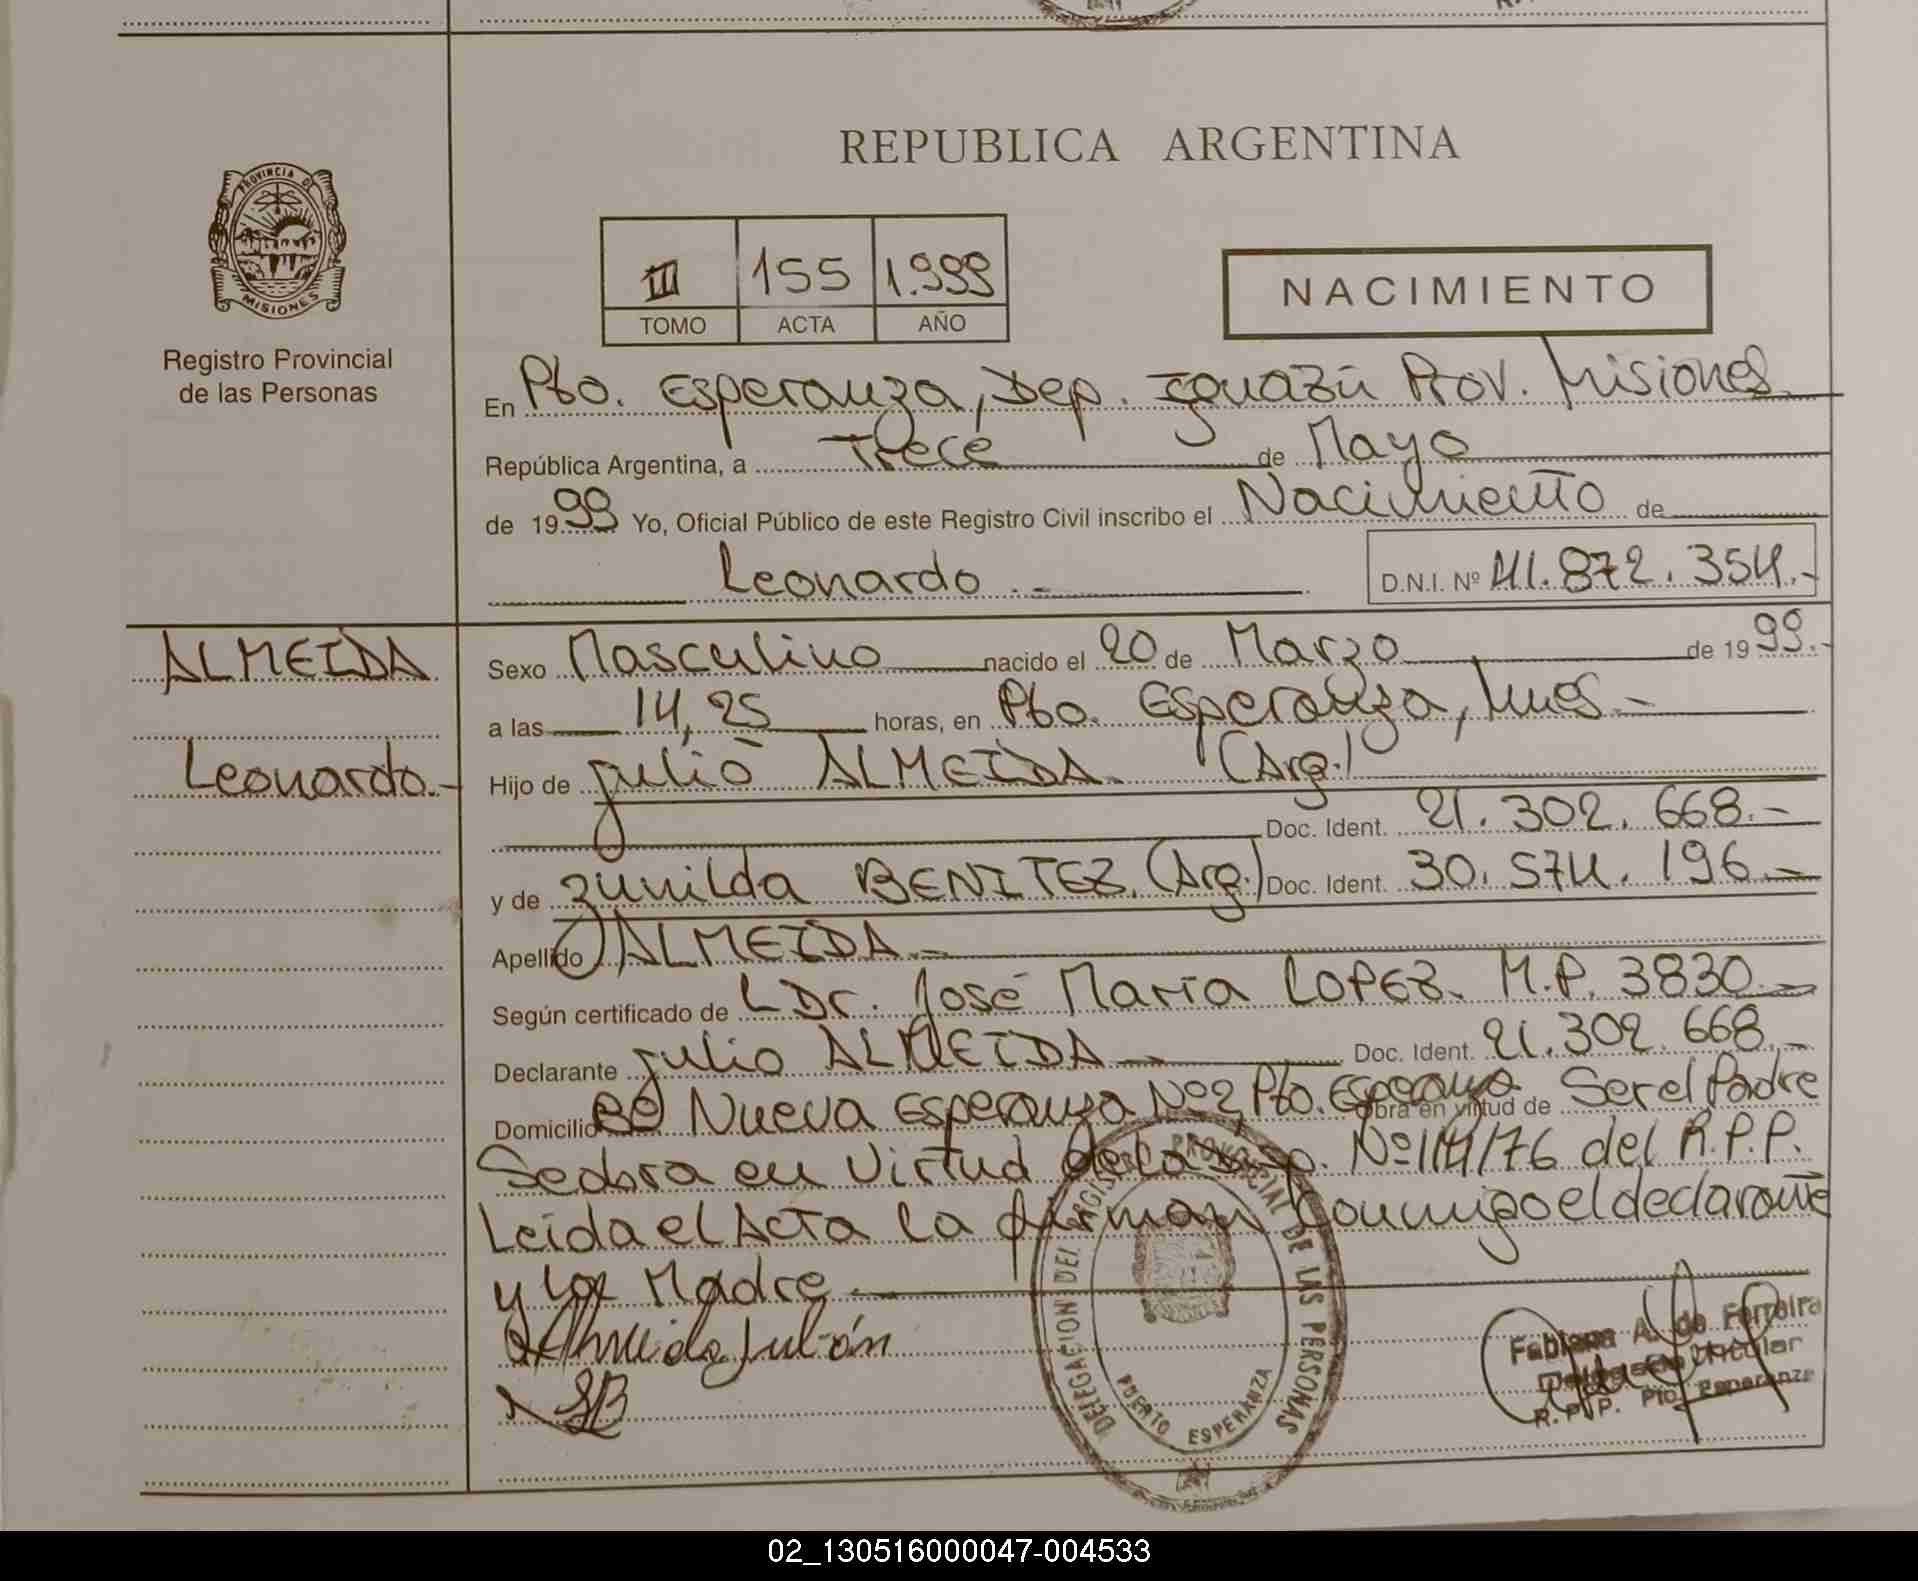 REPUBLICA ARGENTINA
PROVINCIA DE
MISIONES
Registro Provincial
de las Personas
III 155 1.999
TOMO ACTA AÑO
NACIMIENTO
En Pto. Esperanza, Dep. Iguazú Prov. Misiones
República Argentina, a Trece de Mayo
de 1999 Yo, Oficial Público de este Registro Civil inscribo el Nacimiento de
Leonardo.- D.N.I. Nº 41.872.354.-
ALMEIDA
Leonardo.-
Sexo Masculino nacido el 20 de Marzo de 1999.-
a las 14,25 horas, en Pto. Esperanza, Mnes.-
Hijo de Julio ALMEIDA. (Arg.)
Doc. Ident. 21.302.668.-
y de Zunilda BENITEZ. (Arg.) Doc. Ident. 30.574.196.-
Apellido ALMEIDA.-
Según certificado de L Dr. José María LOPEZ. M.P. 3830.-
Declarante Julio ALMEIDA.- Doc. Ident. 21.302.668.-
Domicilio Bº Nueva Esperanza Nº2, Pto. Esperanza Obra en virtud de Ser el Padre
Se obra en Virtud de la Disp. Nº 114/76 del R.P.P.
Leída el Acta la firman Conmigo el declarante
y la Madre
Almeida
DELEGACION DEL REGISTRO PROVINCIAL DE LAS PERSONAS
PUERTO ESPERANZA
Fabiana A. de Ferreira
Titular
R.P.P. Pto. Esperanza
02_130516000047-004533